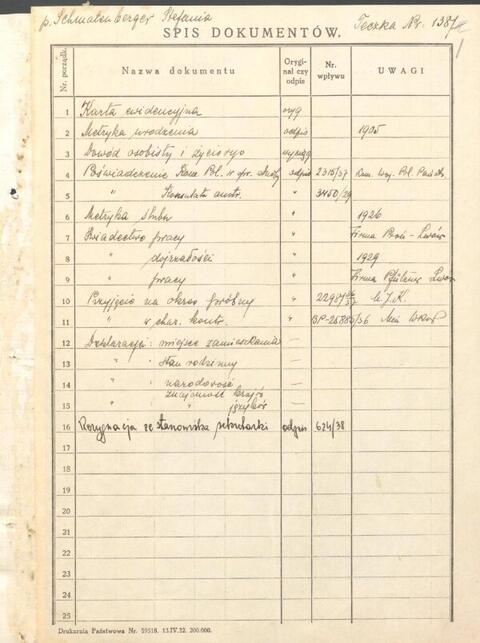 p. Schmatenberger Stefania
Teczka Nr. 1387
SPIS DOKUMENTÓW.
Nr. porządk. Nazwa dokumentu Orygi-nał czy odpis Nr. wpływu UWAGI
1 Karta ewidencyjna oryg
2 Metryka urodzenia odpis 1905
3 Dowód osobisty i życiorys
4 Poświadczenie Kom. Pol. odpis 2315/37 Kom. Woj. Pol. Państw.
5 " Konsulatu austr. " 3450/29
6 Metryka ślubu " 1926
7 Świadectwo pracy " Firma Lwów
8 " dojrzałości " 1929
9 " pracy " Firma Pfützner Lwów
10 Przyjęcie na okres próbny " U.J.K.
11 " w char. kontr. " BP-26885/36 Min
12 Deklaracja: miejsce zamieszkania —
13 " stan rodzinny —
14 " narodowość —
15 " znajomość kraju —
" języków
16 Rezygnacja ze stanowiska sekretarki odpis 624/38
17
18
19
20
21
22
23
24
25
Drukarnia Państwowa Nr. 59518. 13.IV.32. 200.000.